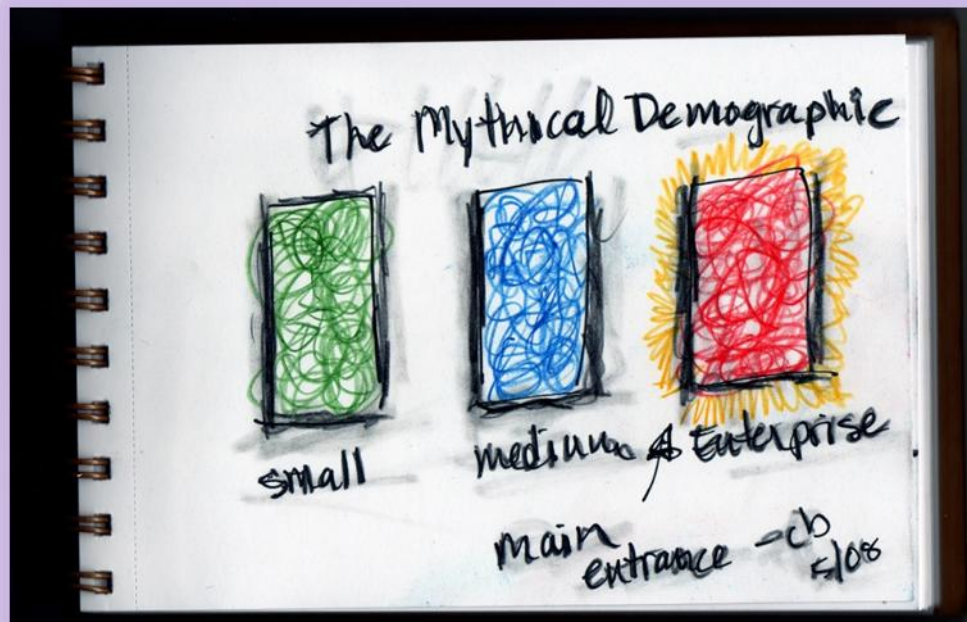 The Mythical Demographic
small
medium
Enterprise
main
entrance
-cb
5/08